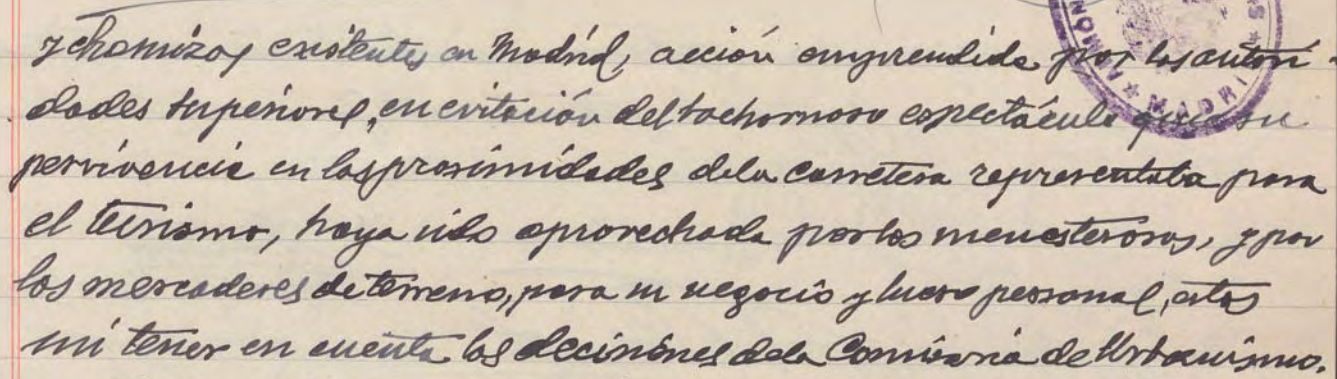 y chamizos existentes en Madrid, acción emprendida por las autori-
dades superiores, en evitación del bochornoso espectáculo que su
pervivencia en las proximidades de la carretera representaba para
el turismo, haya sido aprovechada por los menesterosos, y por
los mercaderes de terreno, para su negocio y lucro personal, estos
sin tener en cuenta las decisiones de la Comisaría de Urbanismo.
MADRI